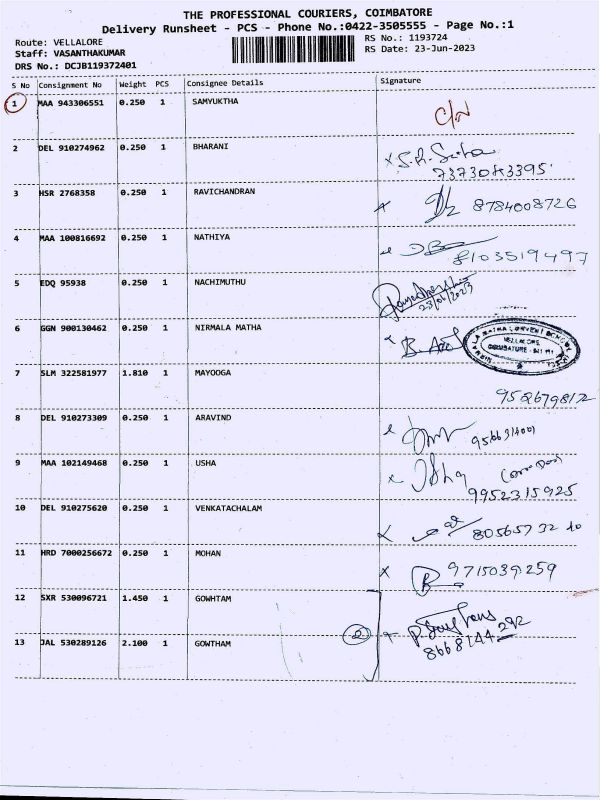 THE PROFESSIONAL COURIERS, COIMBATORE
Delivery Runsheet - PCS - Phone No.:0422-3505555 - Page No.:1
Route: VELLALORE RS No.: 1193724
Staff: VASANTHAKUMAR RS Date: 23-Jun-2023
DRS No.: DCJB119372401
S No Consignment No Weight PCS Consignee Details Signature
1 MAA 943306551 0.250 1 SAMYUKTHA
2 DEL 910274962 0.250 1 BHARANI
3 HSR 2768358 0.250 1 RAVICHANDRAN 8784008726
4 MAA 100816692 0.250 1 NATHIYA 8103519497
5 EDQ 95938 0.250 1 NACHIMUTHU 23/06/2023
6 GGN 900130462 0.250 1 NIRMALA MATHA
VELLALORE
7 SLM 322581977 1.810 1 MAYOOGA
8 DEL 910273309 0.250 1 ARAVIND
9 MAA 102149468 0.250 1 USHA Usha
9952315925
10 DEL 910275620 0.250 1 VENKATACHALAM
11 HRD 7000256672 0.250 1 MOHAN 9715039259
12 SXR 530096721 1.450 1 GOWHTAM
13 JAL 530289126 2.100 1 GOWTHAM 2 8668144292